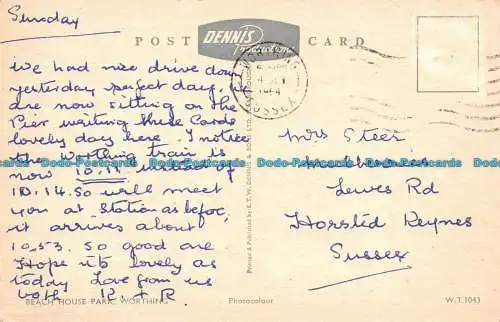 Sunday
POST CARD
DENNIS
Productions
We had nice drive down
yesterday perfect day, we
are now sitting on the
Pier writing these Cards
lovely day here. I notice
the Worthing train is
now 10.11 instead of
10.14. So will meet
you at Station as before,
it arrives about
10.53. So good are
Hope it's lovely as
today Love from us
both R + R
SUSSEX
Mrs Steer
Lewes Rd
Horsted Keynes
Sussex
Printed & Published by E.T.W. DENNIS & SONS LTD.
BEACH HOUSE PARK, WORTHING
Photocolour
W.T.1043
Dodo-Postcards Dodo-Postcards Dodo-Postcards Dodo-Postcards